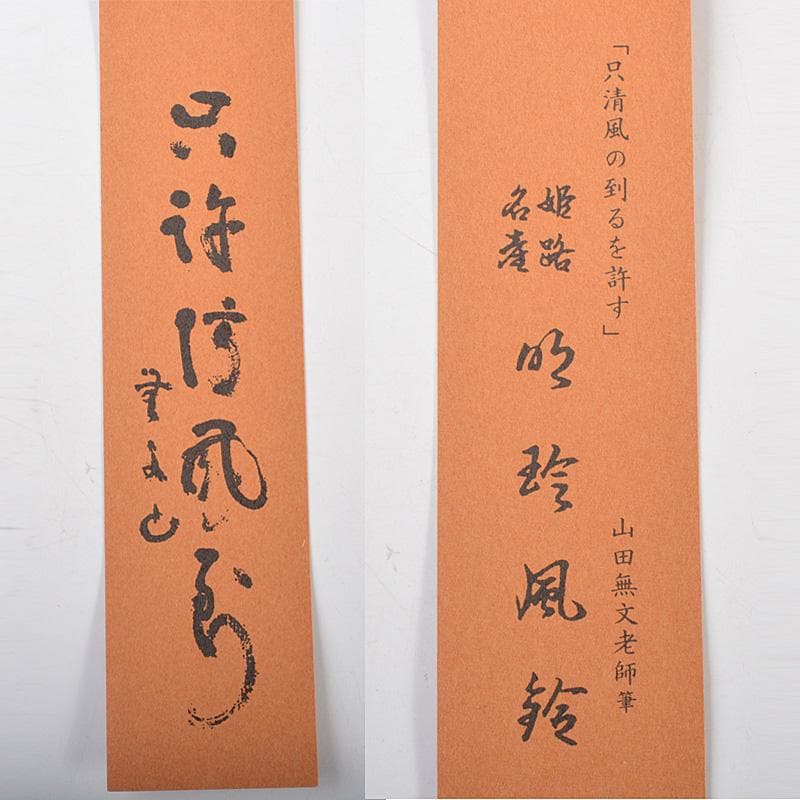 只許清風到
無文
「只清風の到るを許す」
山田無文老師筆
姫路
名産
明珍風鈴